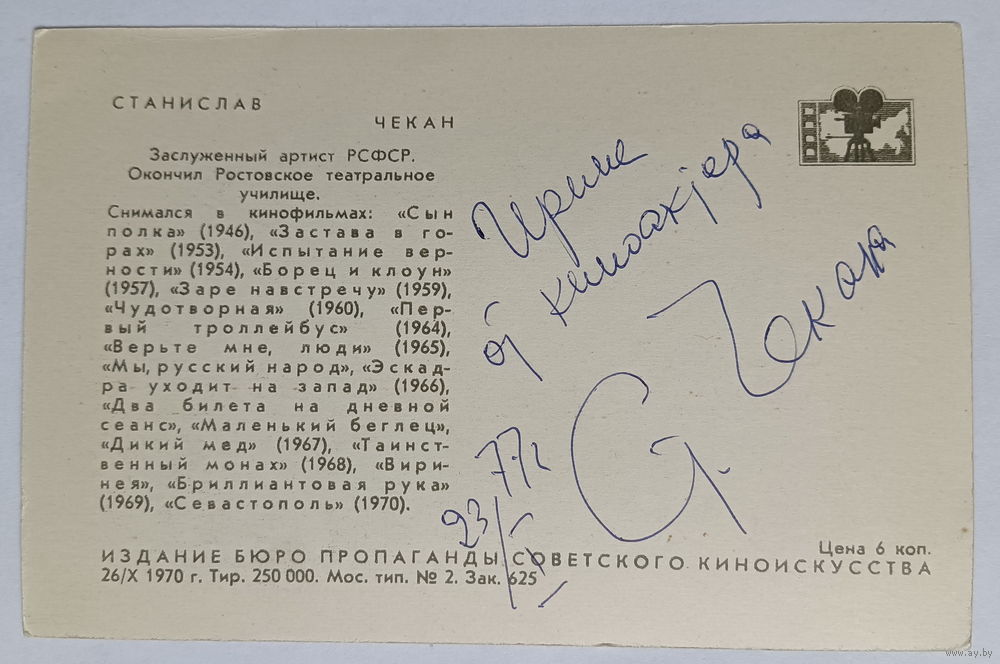 СТАНИСЛАВ
ЧЕКАН
Заслуженный артист РСФСР.
Окончил Ростовское театральное
училище.
Снимался в кинофильмах: «Сын
полка» (1946), «Застава в го-
рах» (1953), «Испытание вер-
ности» (1954), «Борец и клоун»
(1957), «Заре навстречу» (1959),
«Чудотворная» (1960), «Пер-
вый троллейбус» (1964),
«Верьте мне, люди» (1965),
«Мы, русский народ», «Эскад-
ра уходит на запад» (1966),
«Два билета на дневной
сеанс», «Маленький беглец»,
«Дикий мед» (1967), «Таинст-
венный монах» (1968), «Вири-
нея», «Бриллиантовая рука»
(1969), «Севастополь» (1970).
Ирине
от киноактера
С. Чекана
23/ 77г
Цена 6 коп.
ИЗДАНИЕ БЮРО ПРОПАГАНДЫ СОВЕТСКОГО КИНОИСКУССТВА
26/X 1970 г. Тир. 250 000. Мос. тип. № 2. Зак. 625
www.ay.by